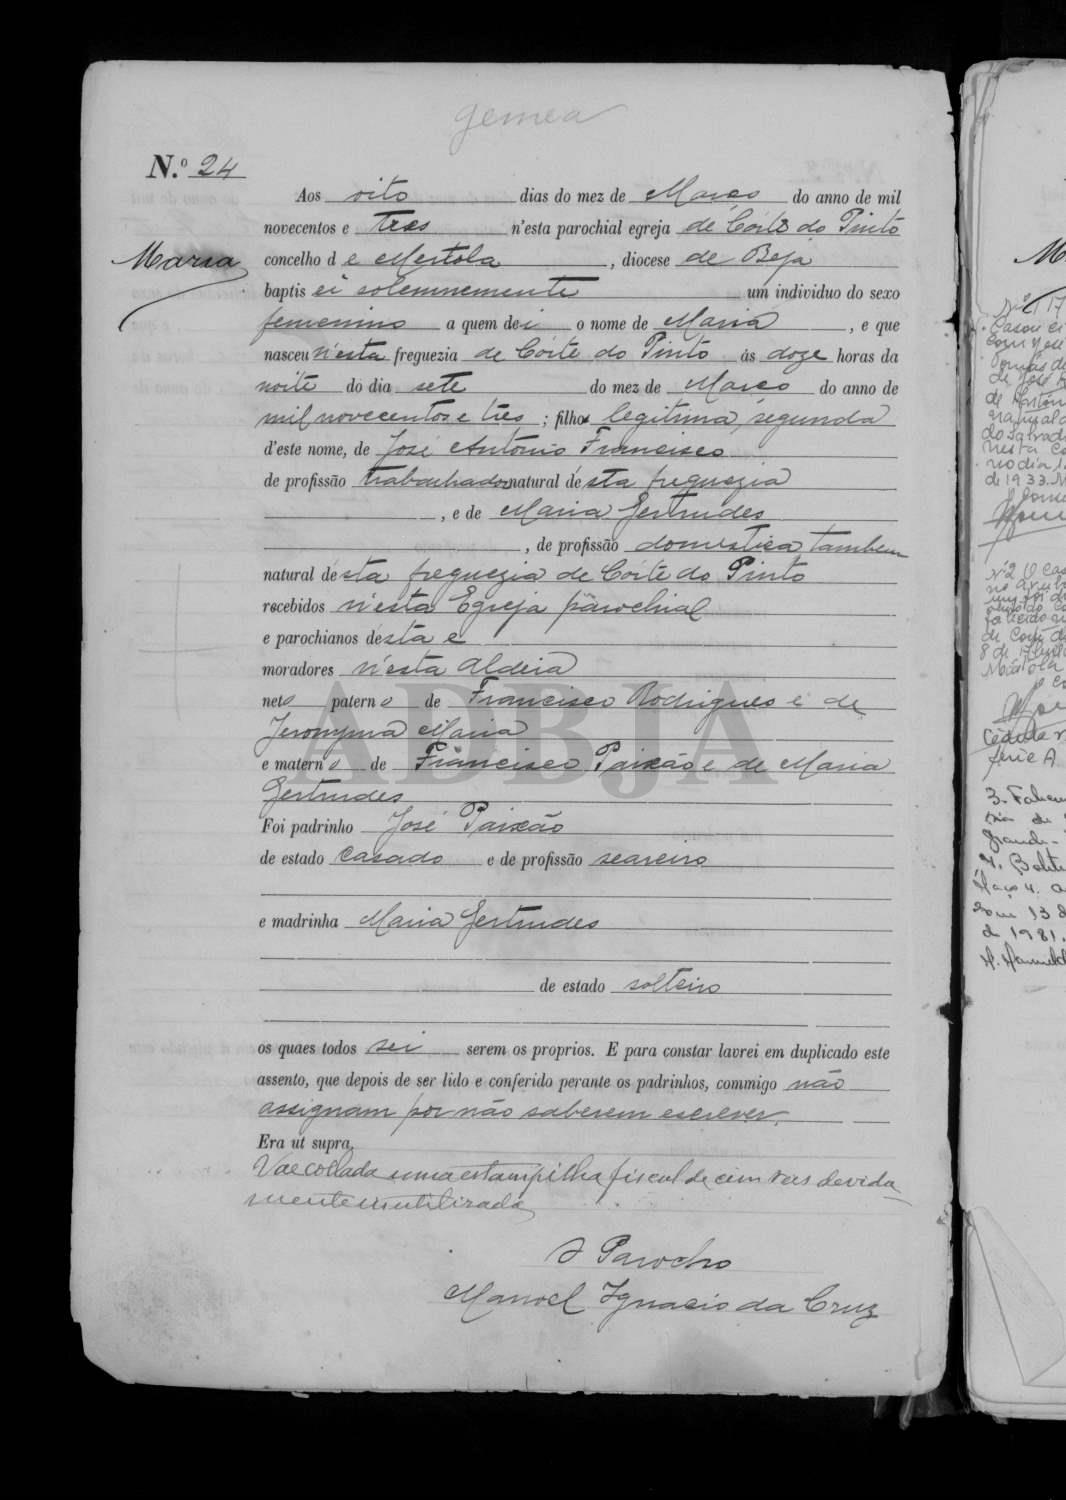 gemea
N.º 24
Aos oito dias do mez de Março do anno de mil
novecentos e tres n'esta parochial egreja de Córte do Pinto
Maria
concelho d e Mertola, diocese de Beja
baptis ei solemnemente um individuo do sexo
femenino a quem dei o nome de Maria, e que
nasceu n'esta freguezia de Córte do Pinto ás doze horas da
noite do dia sete do mez de Março do anno de
mil novecentos e tres; filha legitima, segunda
d'este nome, de José António Francisco
de profissão trabalhador natural désta freguezia
, e de Maria Gertrudes
, de profissão domestica tambem
natural désta freguezia de Córte do Pinto
recebidos n'esta Egreja parochial
e parochianos désta e
moradores n'esta aldeia
neto paterno de Francisco Rodrigues e de
Jeronyma Maria
e materno de Francisco Paixão e de Maria
Gertrudes
Foi padrinho José Paixão
de estado casado e de profissão seareiro
e madrinha Maria Gertrudes
de estado solteiro
os quaes todos sei serem os proprios. E para constar lavrei em duplicado este
assento, que depois de ser lido e conferido perante os padrinhos, commigo não
assignam por não saberem escrever.
Era ut supra.
Vae collada uma estampilha fiscal de cem reis devida
mente inutilizada
O Parocho
Manoel Ignacio da Cruz
ADBJA
Nº 17
Casou
de 1933.
Nº 2 O
8 de
Mértola
Cédula
série A
3. Falec
de
grande
N.
4.
13
de 1981.